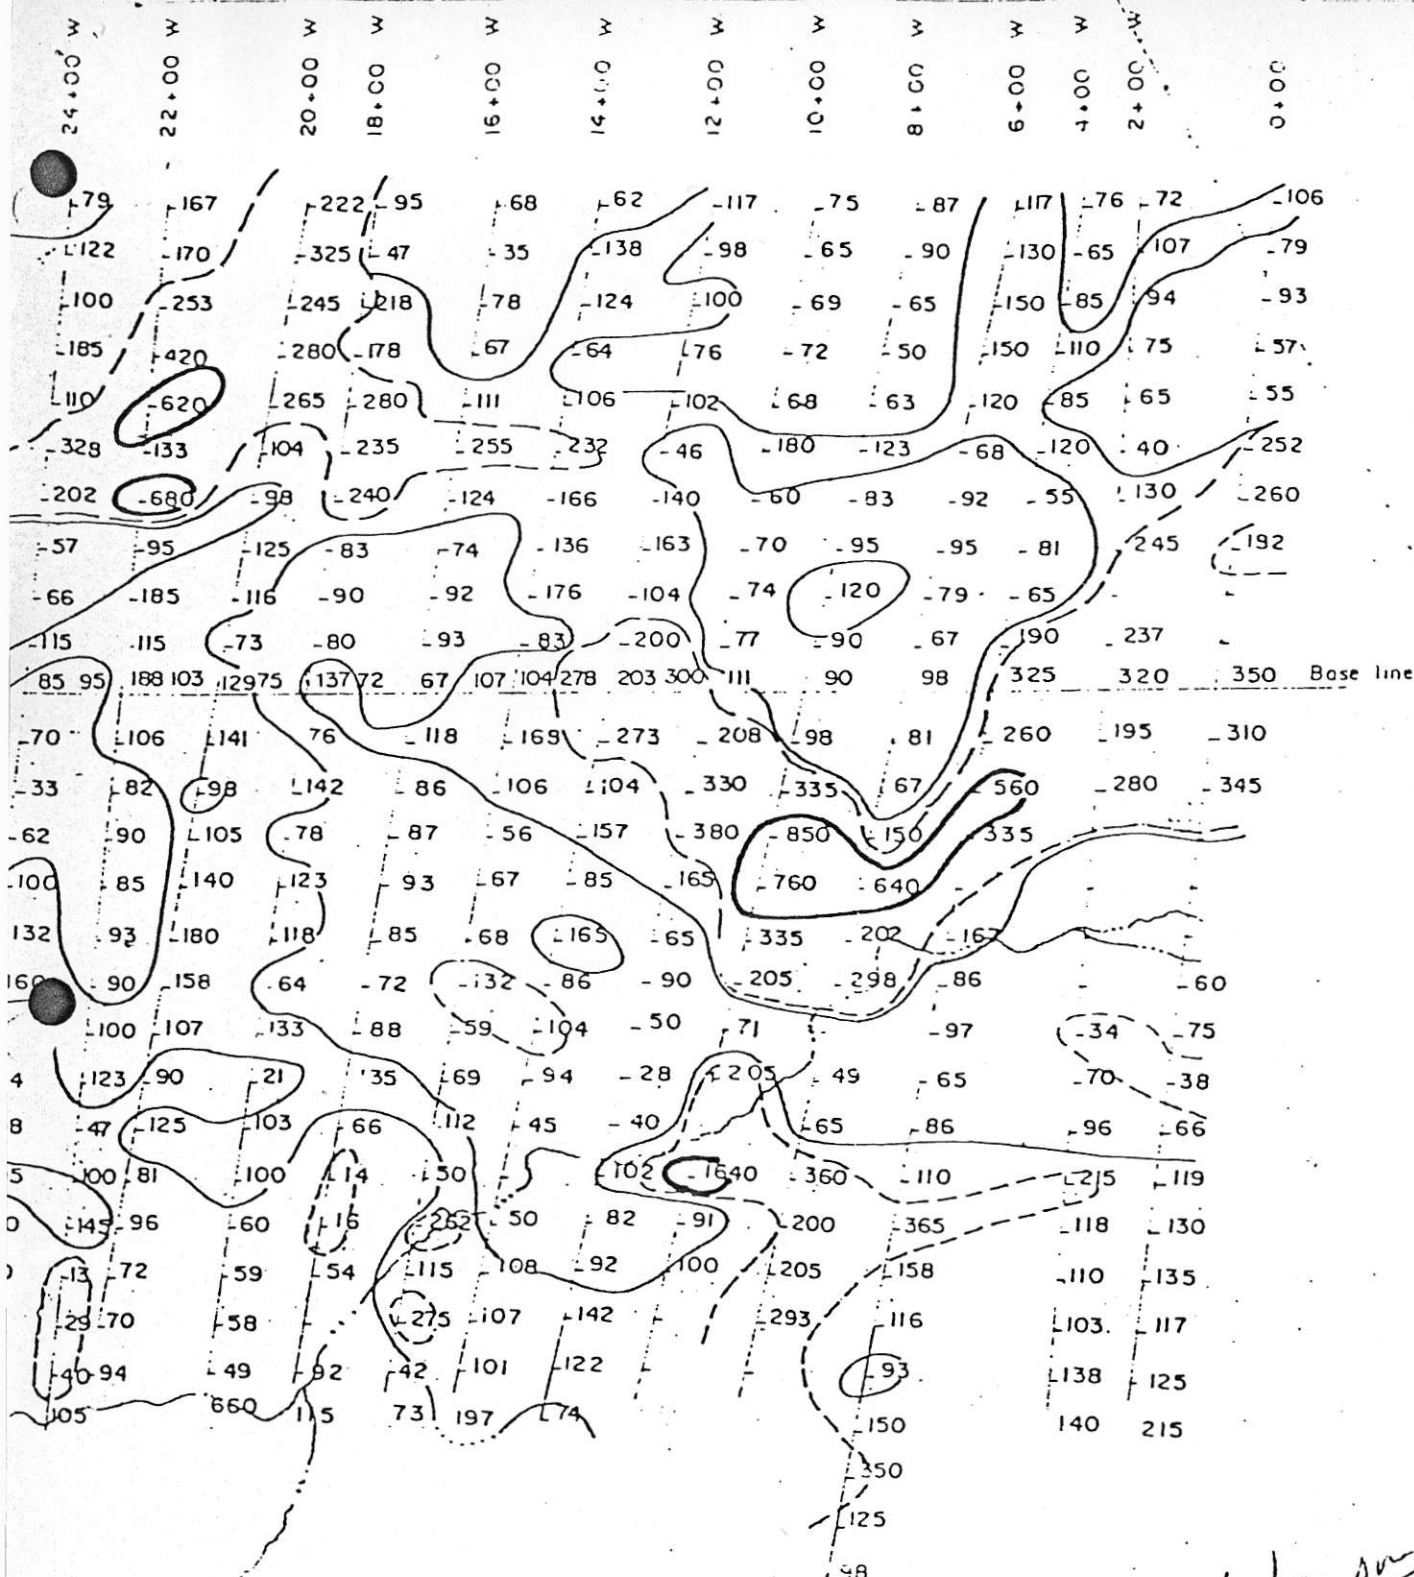 24+00 W 22+00 W 20+00 W 18+00 W 16+00 W 14+00 W 12+00 W 10+00 W 8+00 W 6+00 W 4+00 W 2+00 W 0+00
79 167 222 95 68 62 117 75 87 117 76 72 106
122 170 325 47 35 138 98 65 90 130 65 107 79
100 253 245 218 78 124 100 69 65 150 85 94 93
185 420 280 178 67 64 76 72 50 150 110 75 57
110 620 265 280 111 106 102 68 63 120 85 65 55
328 133 104 235 255 232 46 180 123 68 120 40 252
202 680 98 240 124 166 140 60 83 92 55 130 260
57 95 125 83 74 136 163 70 95 95 81 245 192
66 185 116 90 92 176 104 74 120 79 65
115 115 73 80 93 83 200 77 90 67 190 237
85 95 188 103 129 75 137 72 67 107 104 278 203 300 111 90 98 325 320 350 Base line
70 106 141 76 118 169 273 208 98 81 260 195 310
33 82 98 142 86 106 104 330 335 67 560 280 345
62 90 105 78 87 56 157 380 850 150 335
100 85 140 123 93 67 85 165 760 640
132 93 180 118 85 68 165 65 335 202 167
160 90 158 64 72 132 86 90 205 298 86 60
100 107 133 88 59 104 50 71 97 34 75
4 123 90 21 35 69 94 28 205 49 65 70 38
8 47 125 103 66 112 45 40 65 86 96 66
5 100 81 100 14 50 102 1640 360 110 215 119
0 145 96 60 16 262 50 82 91 200 365 118 130
13 72 59 54 115 108 92 100 205 158 110 135
29 70 58 275 107 142 293 116 103 117
40 94 49 92 42 101 122 93 138 125
105 660 115 73 197 74 150 140 215
350
125
98